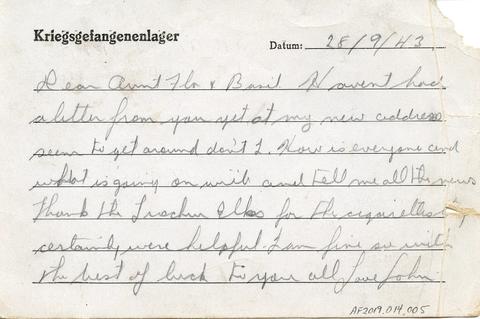 Kriegsgefangenenlager
Datum: 28/9/43
Dear Aunt Flo & Basil Havent had
a letter from you yet at my new address
seem to get around don't I. How is everyone and
what is going on write and tell me all the news
Thank the folks for the cigarettes they
certainly were helpful. I am fine so with
the best of luck to you all Love John
AF2019.014.005